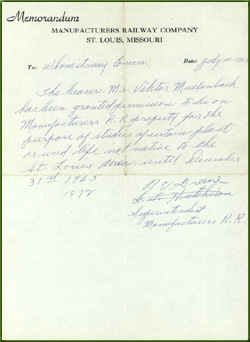 Memorandum
MANUFACTURERS RAILWAY COMPANY
ST. LOUIS, MISSOURI
To: Whom it may Concern Date: July 10,
The bearer Mr. Viktor Muehlenbach
has been granted permission to be on
Manufacturers R.R. property for the
purpose of studies of certain plant
or weed life not native to the
St. Louis area until December
31st 1963
1972
R E Greene
Hutchison
Superintendent
Manufacturers R.R.